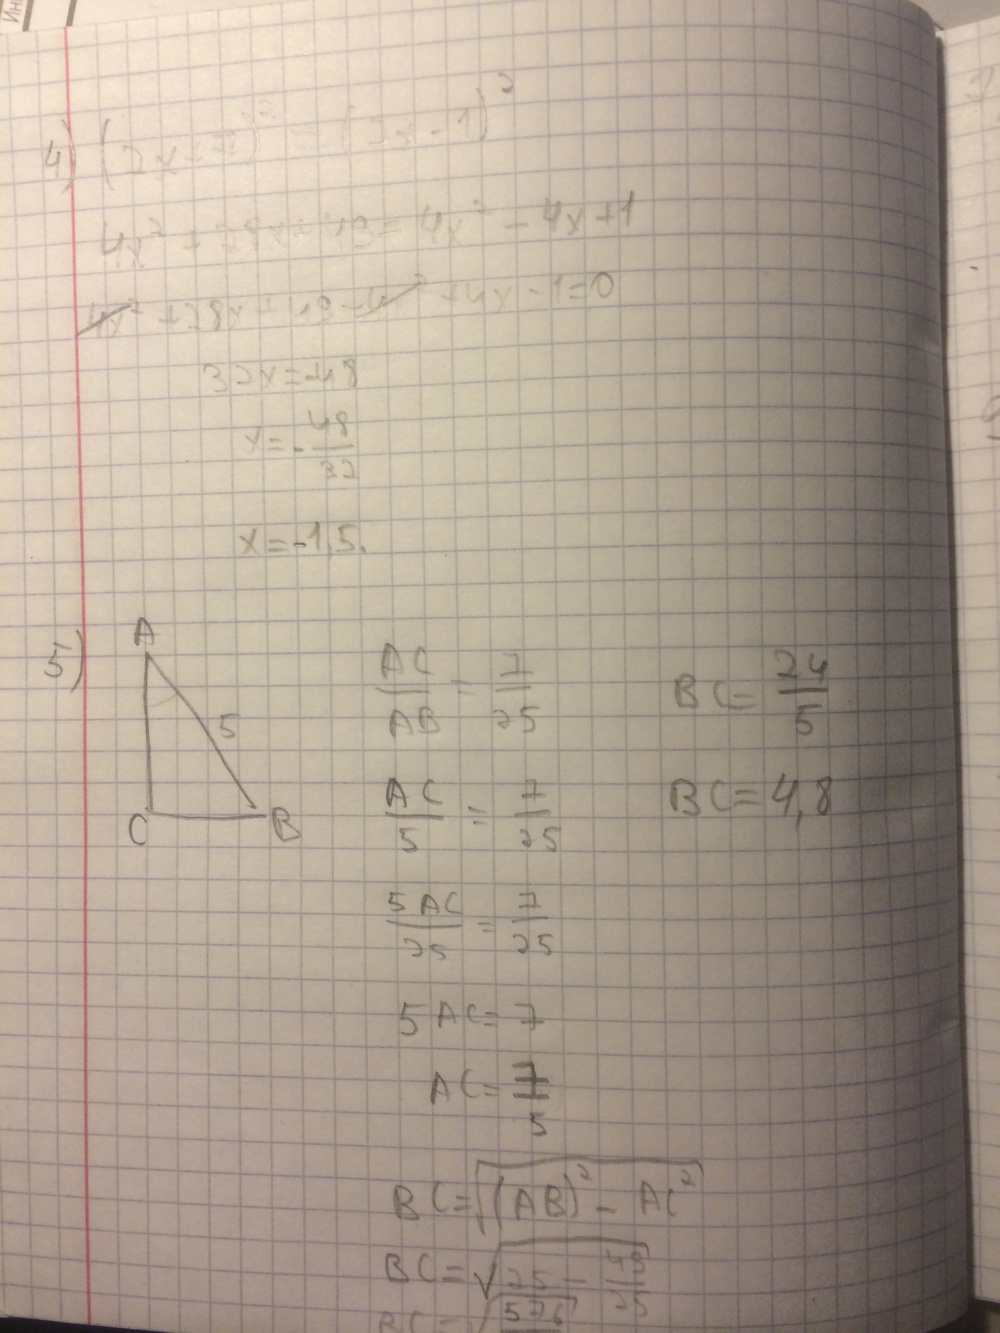 4) (2x+7)² = (2x-1)²
4x² + 28x + 49 = 4x² - 4x + 1
4x² + 28x + 49 - 4x² + 4x - 1 = 0
32x = -48
x = - 48/32
x = -1,5.
5)
A
5
C B
AC/AB = 7/25
AC/5 = 7/25
5AC/25 = 7/25
5AC = 7
AC = 7/5
BC = √((AB)² - AC²)
BC = √(25 - 49/25)
BC = √576
BC = 24/5
BC = 4,8